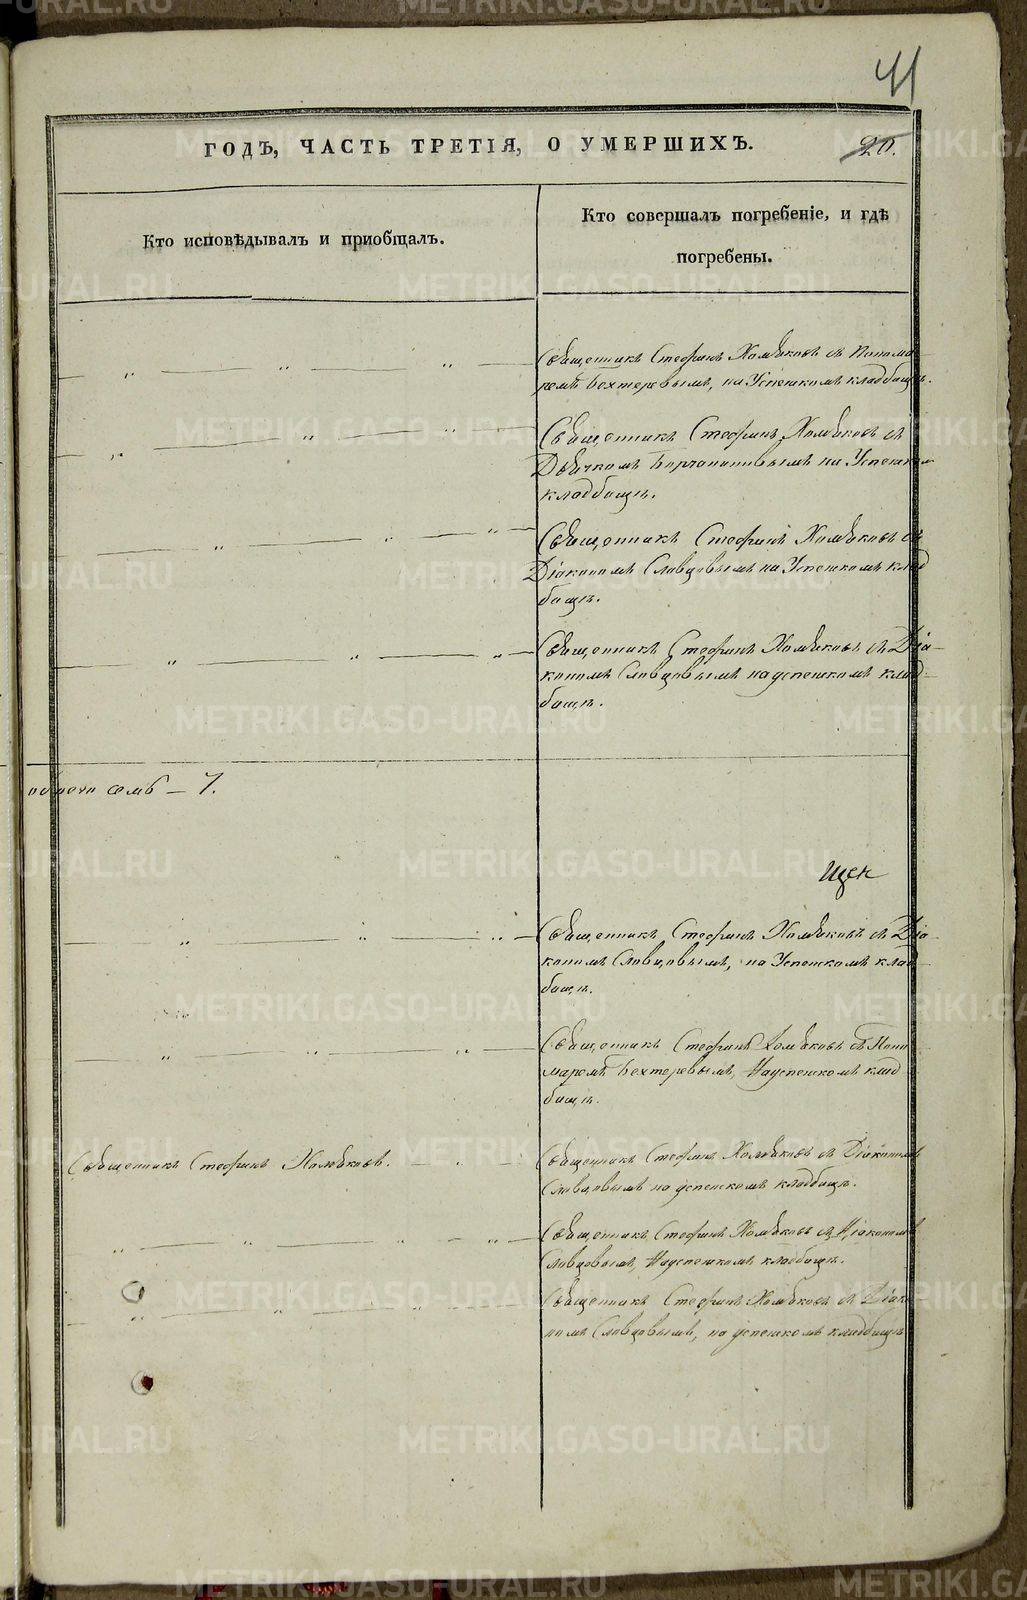 41
ГОДЪ, ЧАСТЬ ТРЕТІЯ, О УМЕРШИХЪ.
20.
Кто исповѣдывалъ и пріобщалъ.
Кто совершалъ погребеніе, и гдѣ
погребены.
Священникъ Стефанъ Хомяковъ съ Понома
ремъ Бехтеревымъ, на Успенкомъ кладбищѣ.
Священникъ Стефанъ Хомяковъ съ
на Успенком
кладбищѣ.
Священникъ Стефанъ Хомяковъ съ
Діакономъ Словцовымъ на Успенкомъ клад
бищѣ.
Священникъ Стефанъ Хомяковъ съ Діа
кономъ Словцовымъ на успенкомъ клад
бищѣ.
семь – 7.
Священникъ Стефанъ Хомяковъ съ Діа
кономъ Словцовымъ, на Успенкомъ клад
бищѣ.
Священникъ Стефанъ Хомяковъ съ Поно
маремъ Бехтеревымъ, На успенкомъ клад
бищѣ.
Священникъ Стефанъ Хомяковъ.
Священникъ Стефанъ Хомяковъ съ Діакономъ
Словцовымъ на успенкомъ кладбищѣ.
Священникъ Стефанъ Хомяковъ съ Діакономъ
Словцовымъ, На успенкомъ кладбищѣ.
Священникъ Стефанъ Хомяковъ съ Діако
номъ Словцовымъ, на успенкомъ кладбищѣ
METRIKI.GASO-URAL.RU